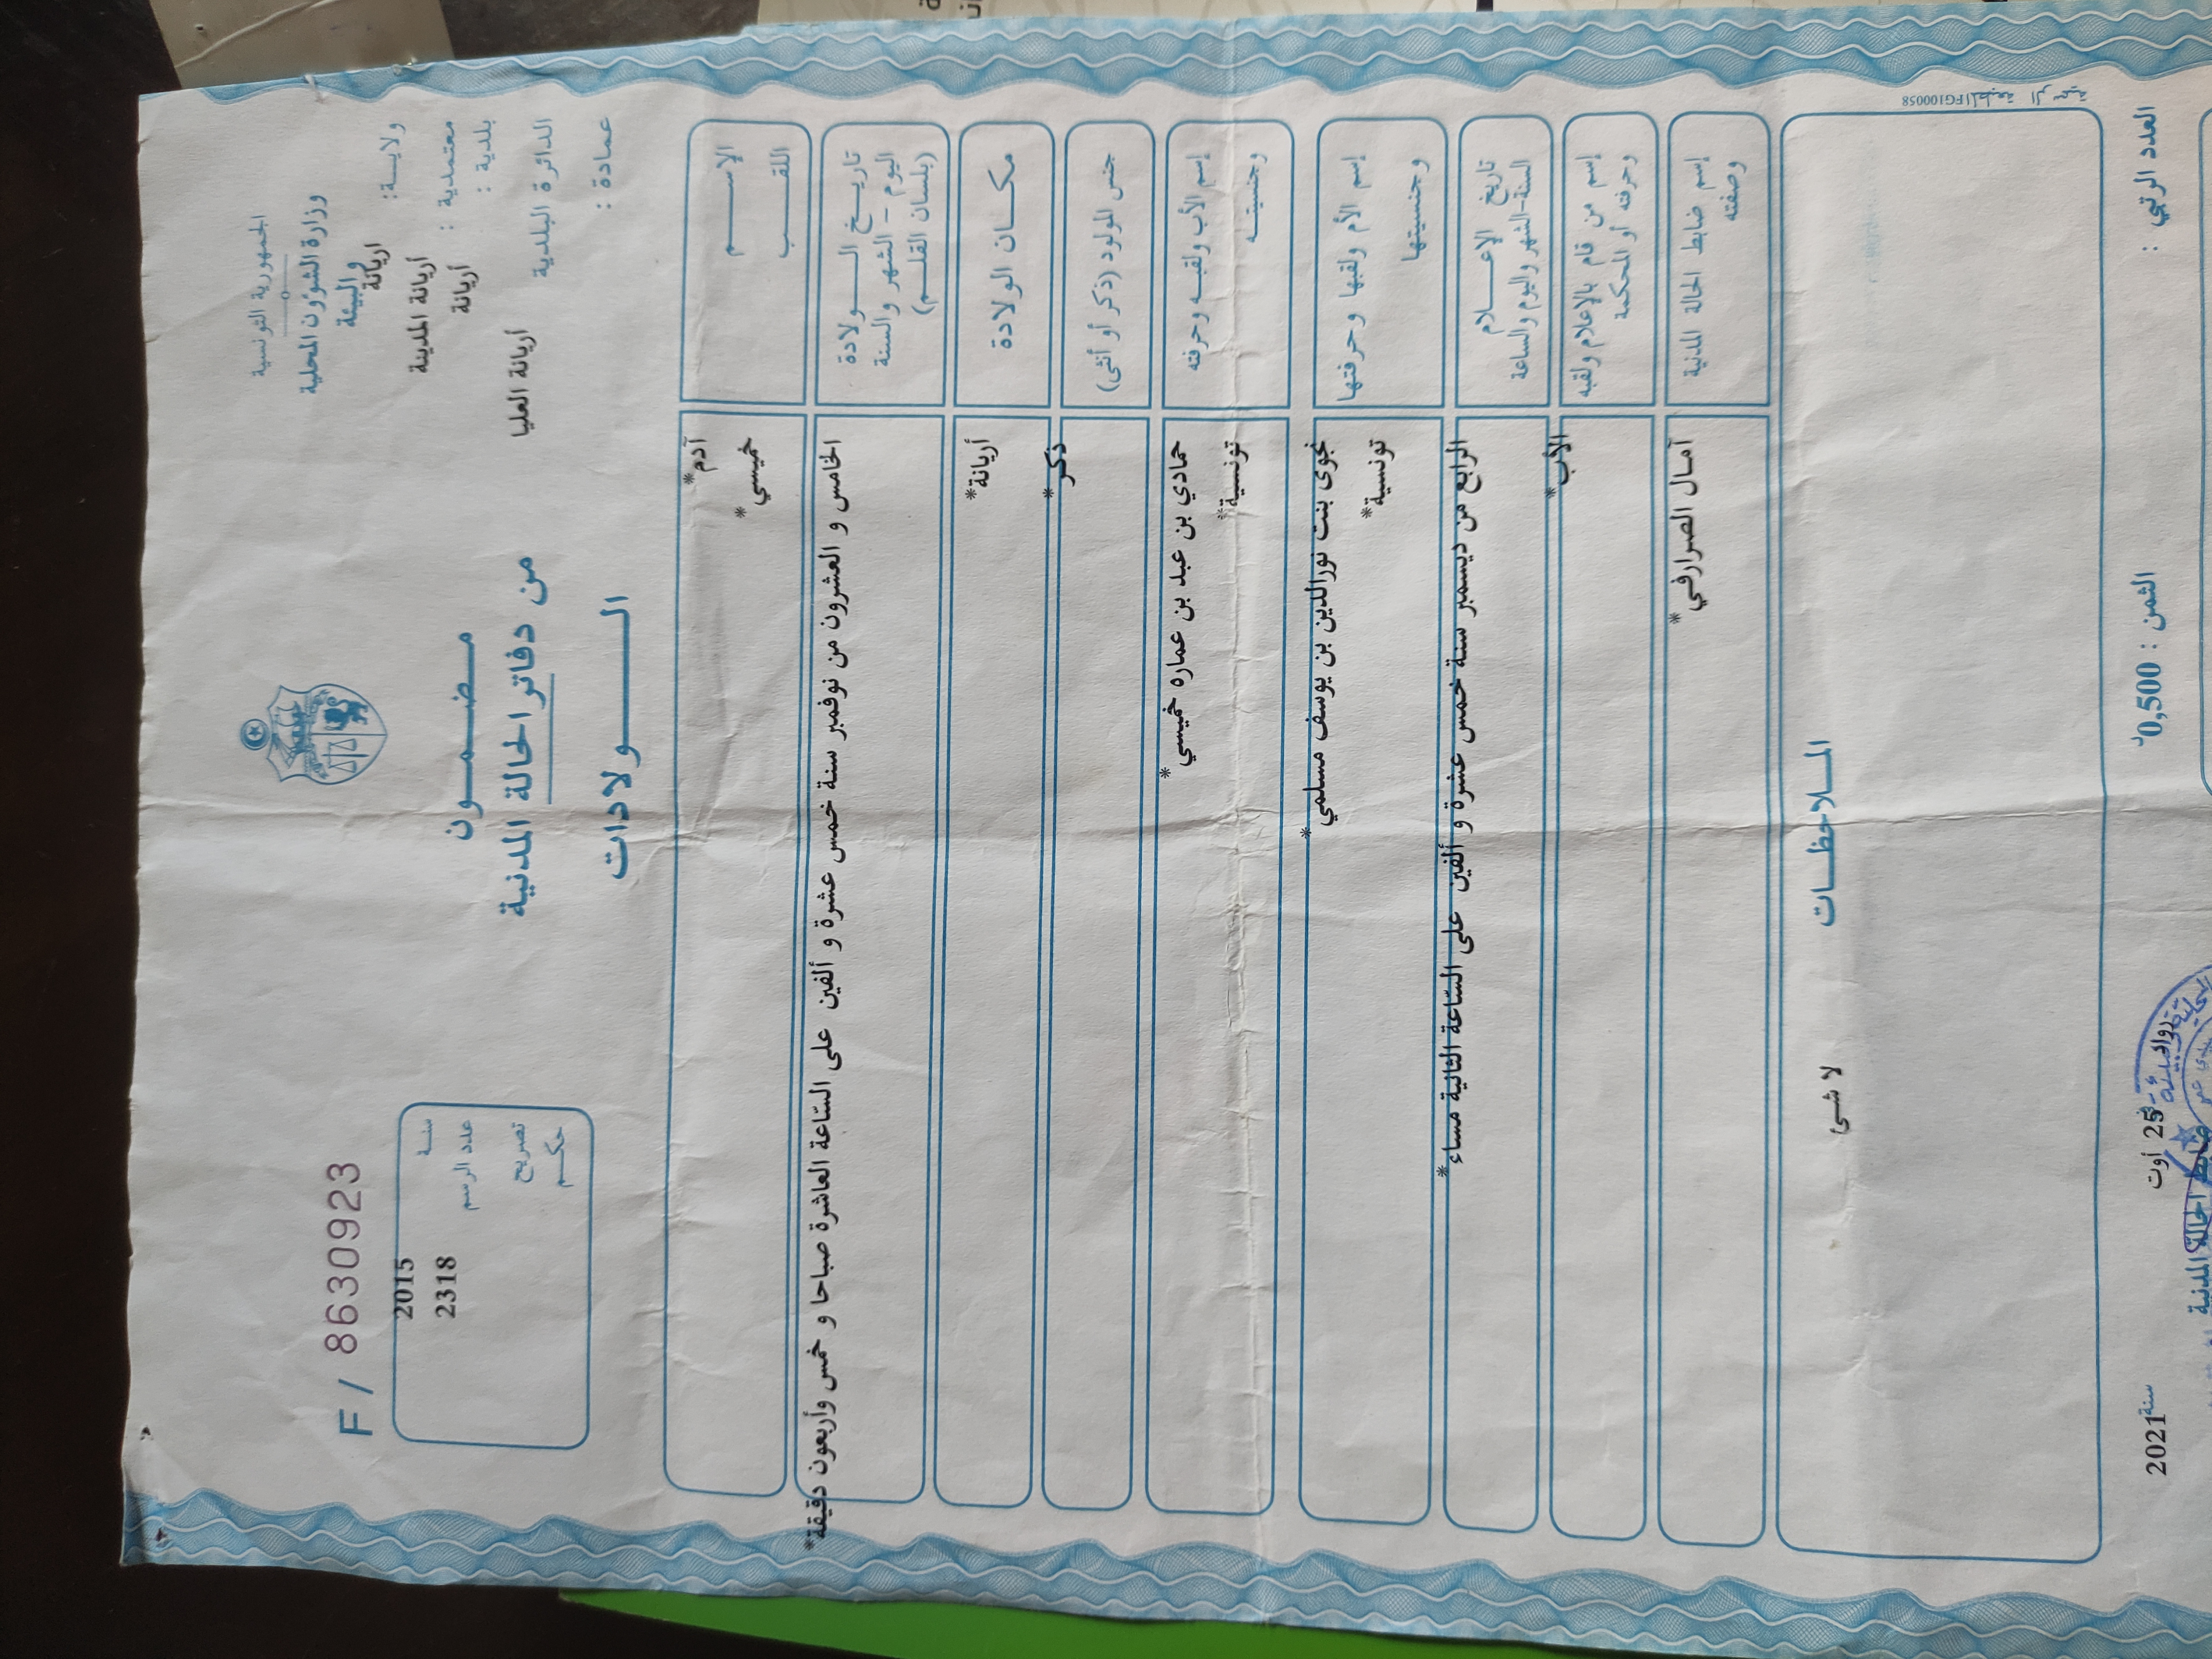 الجمهورية التونسية
وزارة الشؤون المحلية
والبيئة
ولاية: اريانة
معتمدية : أريانة المدينة
بلدية : أريانة
الدائرة البلدية أريانة العليا
عمادة :
مضمون
من دفاتر الحالة المدنية
الولادات
F / 8630923
سنة 2015
عدد الرسم 2318
تصريح
حكم
الإسم آدم*
اللقب خميسي*
تاريخ الولادة
اليوم - الشهر والسنة
(بلسان القلم)
الخامس و العشرون من نوفمبر سنة خمس عشرة و ألفين على السّاعة العاشرة صباحا و خمس وأربعون دقيقة*
مكان الولادة أريانة*
جنس المولود (ذكر أو أنثى) ذكر*
إسم الأب ولقبه وحرفته حمادي بن عبد بن عماره خميسي*
وجنسيته تونسية*
إسم الأم ولقبها وحرفتها نجوى بنت نورالدين بن يوسف مسلمي*
وجنسيتها تونسية*
تاريخ الإعلام
السنة-الشهر واليوم والساعة
الرابع من ديسمبر سنة خمس عشرة و ألفين على السّاعة الثانية مساء*
إسم من قام بالإعلام ولقبه
وحرفته أو المحكمة
الأب*
إسم ضابط الحالة المدنية
وصفته
آمال الصرارفي*
الملاحظات
لا شئ
المطبعة الرسمية FG100058
العدد الرتبي :
الثمن : 0,500د
25 أوت
سنة 2021
ضابط الحالة المدنية